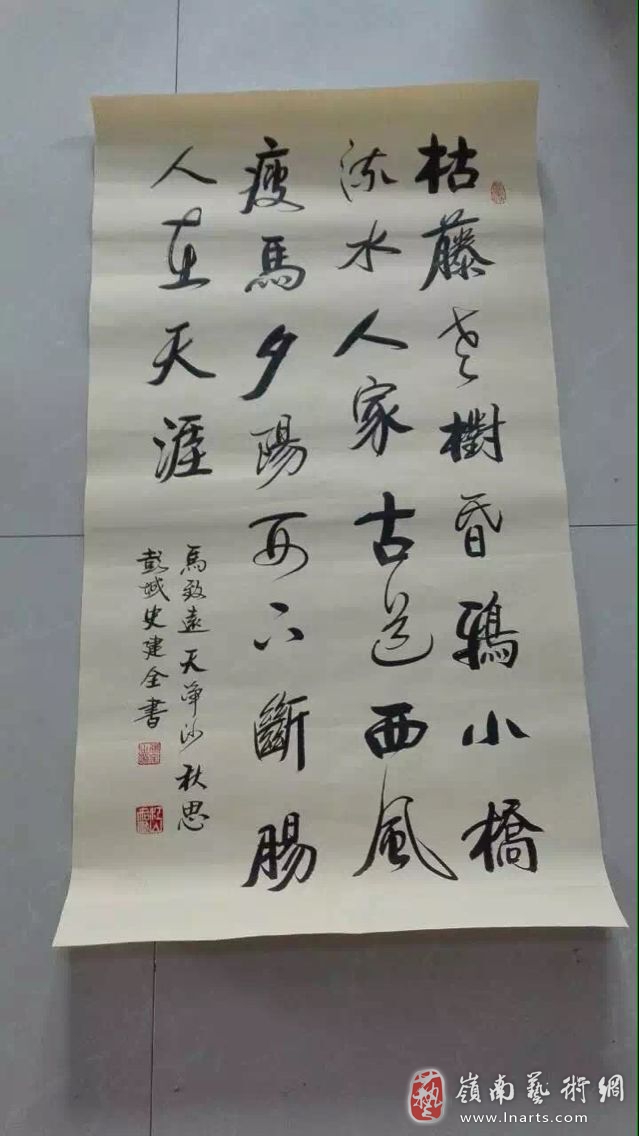 枯藤老樹昏鴉小橋
流水人家古道西風
瘦馬夕陽西下斷腸
人在天涯
馬致遠 天淨沙 秋思
彭城史建全書
藝
嶺南藝術網
www.lnarts.com